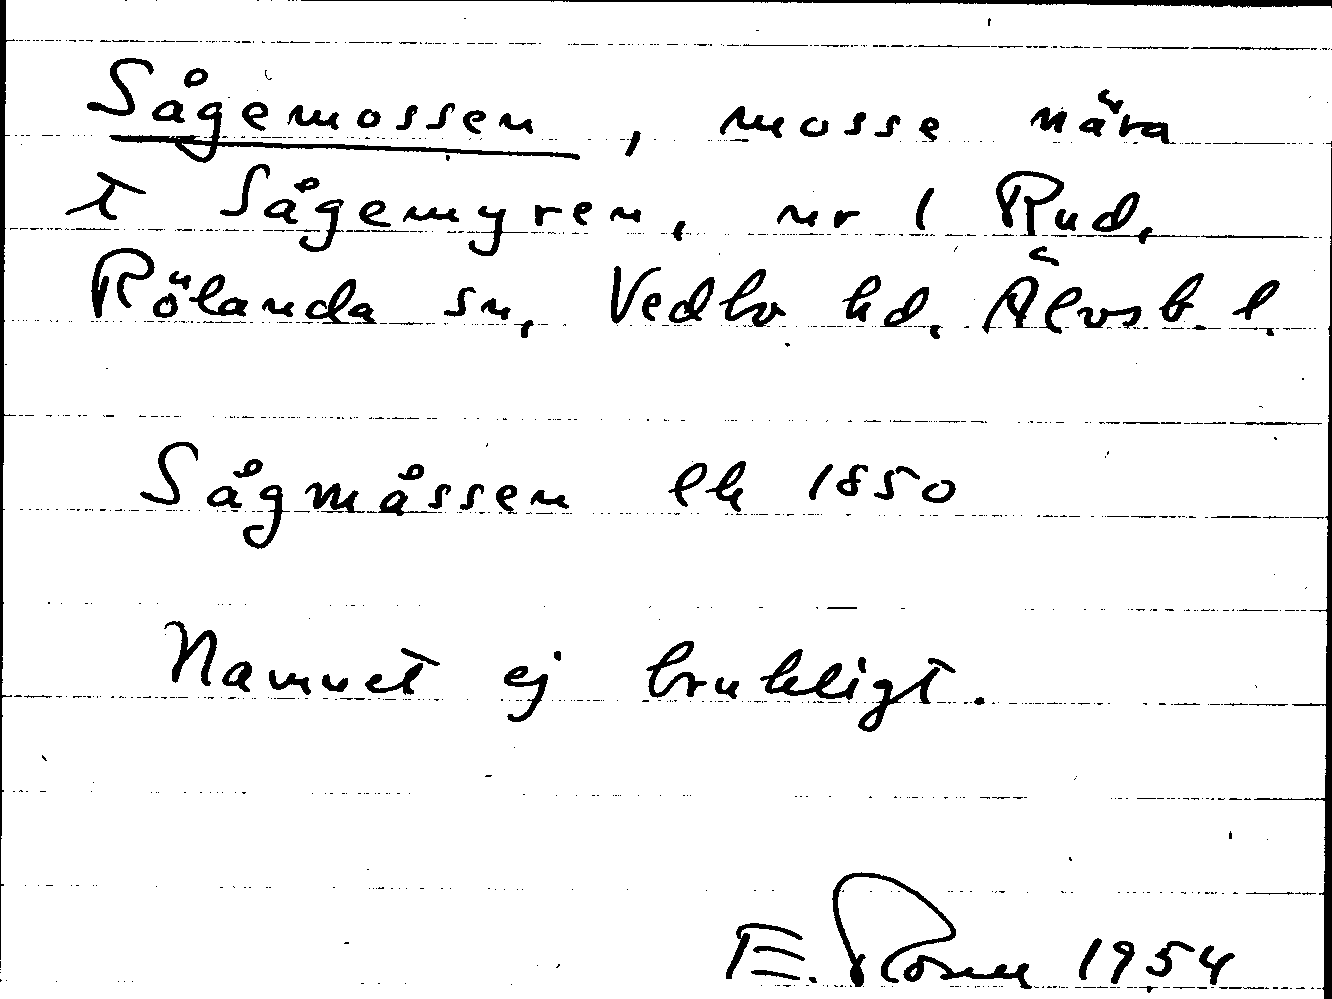 Sågemossen, mosse nära
t Sågemyren, nr 1 Rud,
Rölanda sn, Vedbo hd, Älvsb. l.
Sågmåssen ek 1850
Namnet ej brukligt.
E. Rosell 1954